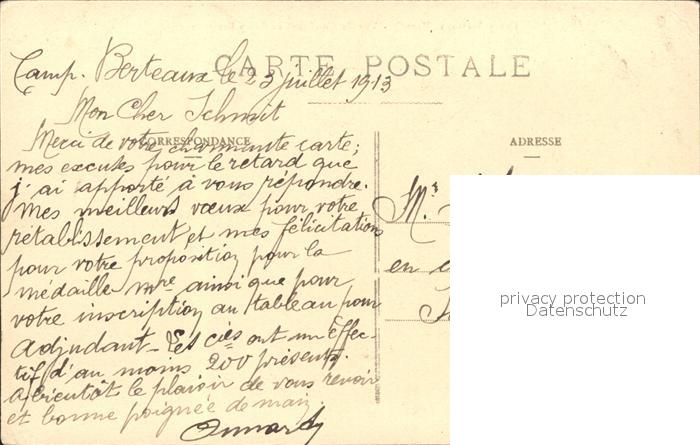 CARTE POSTALE
Camp. Berteaux le 23 juillet 1913
Mon Cher Schmit
CORRESPONDANCE
ADRESSE
Merci de votre charmante carte;
mes excuses pour le retard que
j'ai apporté à vous répondre.
Mes meilleurs vœux pour votre
rétablissement et mes félicitations
pour votre proposition pour la
médaille mre ainsi que pour
votre inscription au tableau pour
adjudant - Les cies ont un effec-
tif d'au moins 200 présents.
A bientôt le plaisir de vous revoir
et bonne poignée de main.
Mr.
en
privacy protection
Datenschutz